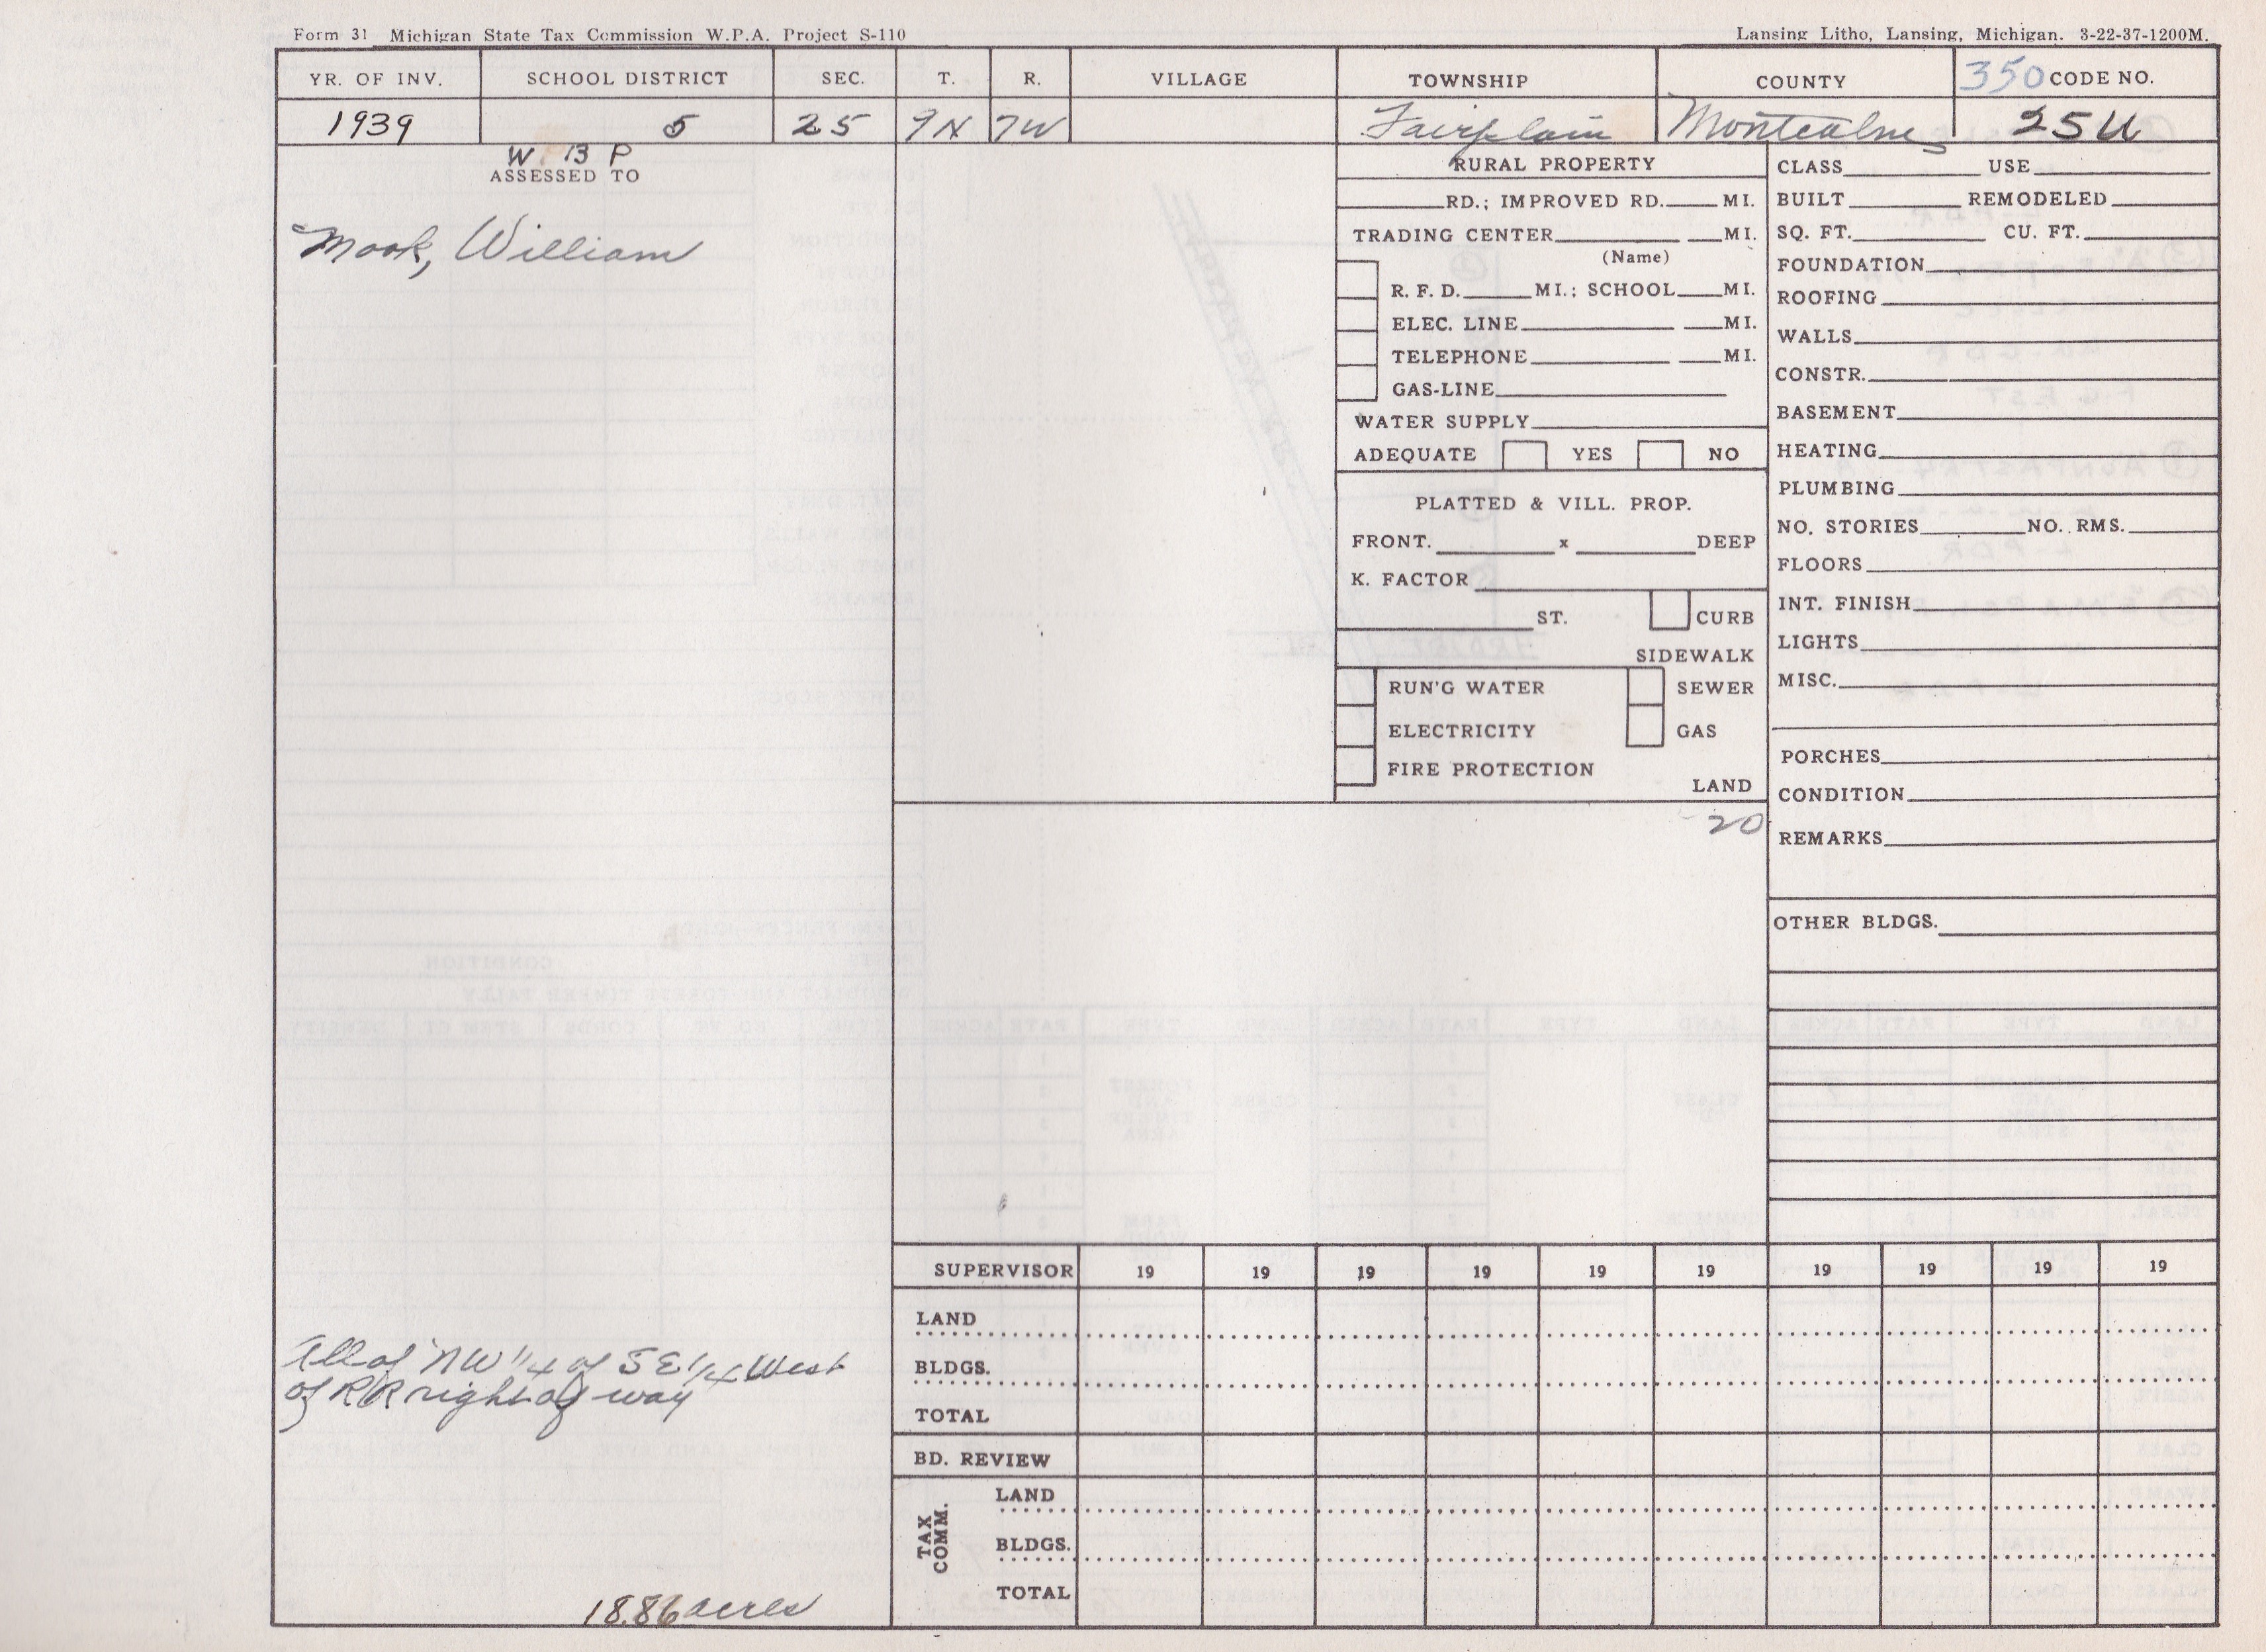 Form 31 Michigan State Tax Commission W.P.A. Project S-110
Lansing Litho, Lansing, Michigan. 3-22-37-1200M.
YR. OF INV. SCHOOL DISTRICT SEC. T. R. VILLAGE TOWNSHIP COUNTY 350 CODE NO.
1939 5 25 9N 7W Fairplain Montcalm 25U
W 13 P
ASSESSED TO
Mook, William
All of NW 1/4 of SE 1/4 West
of RR right of way
18.86 acres
RURAL PROPERTY
RD.; IMPROVED RD. MI.
TRADING CENTER MI.
(Name)
R. F. D. MI.; SCHOOL MI.
ELEC. LINE MI.
TELEPHONE MI.
GAS-LINE
WATER SUPPLY
ADEQUATE YES NO
PLATTED & VILL. PROP.
FRONT. x DEEP
K. FACTOR
ST. CURB
SIDEWALK
RUN'G WATER SEWER
ELECTRICITY GAS
FIRE PROTECTION
LAND
20
CLASS USE
BUILT REMODELED
SQ. FT. CU. FT.
FOUNDATION
ROOFING
WALLS
CONSTR.
BASEMENT
HEATING
PLUMBING
NO. STORIES NO. RMS.
FLOORS
INT. FINISH
LIGHTS
MISC.
PORCHES
CONDITION
REMARKS
OTHER BLDGS.
SUPERVISOR 19 19 19 19 19 19 19 19 19 19
LAND
BLDGS.
TOTAL
BD. REVIEW
TAX COMM.
LAND
BLDGS.
TOTAL